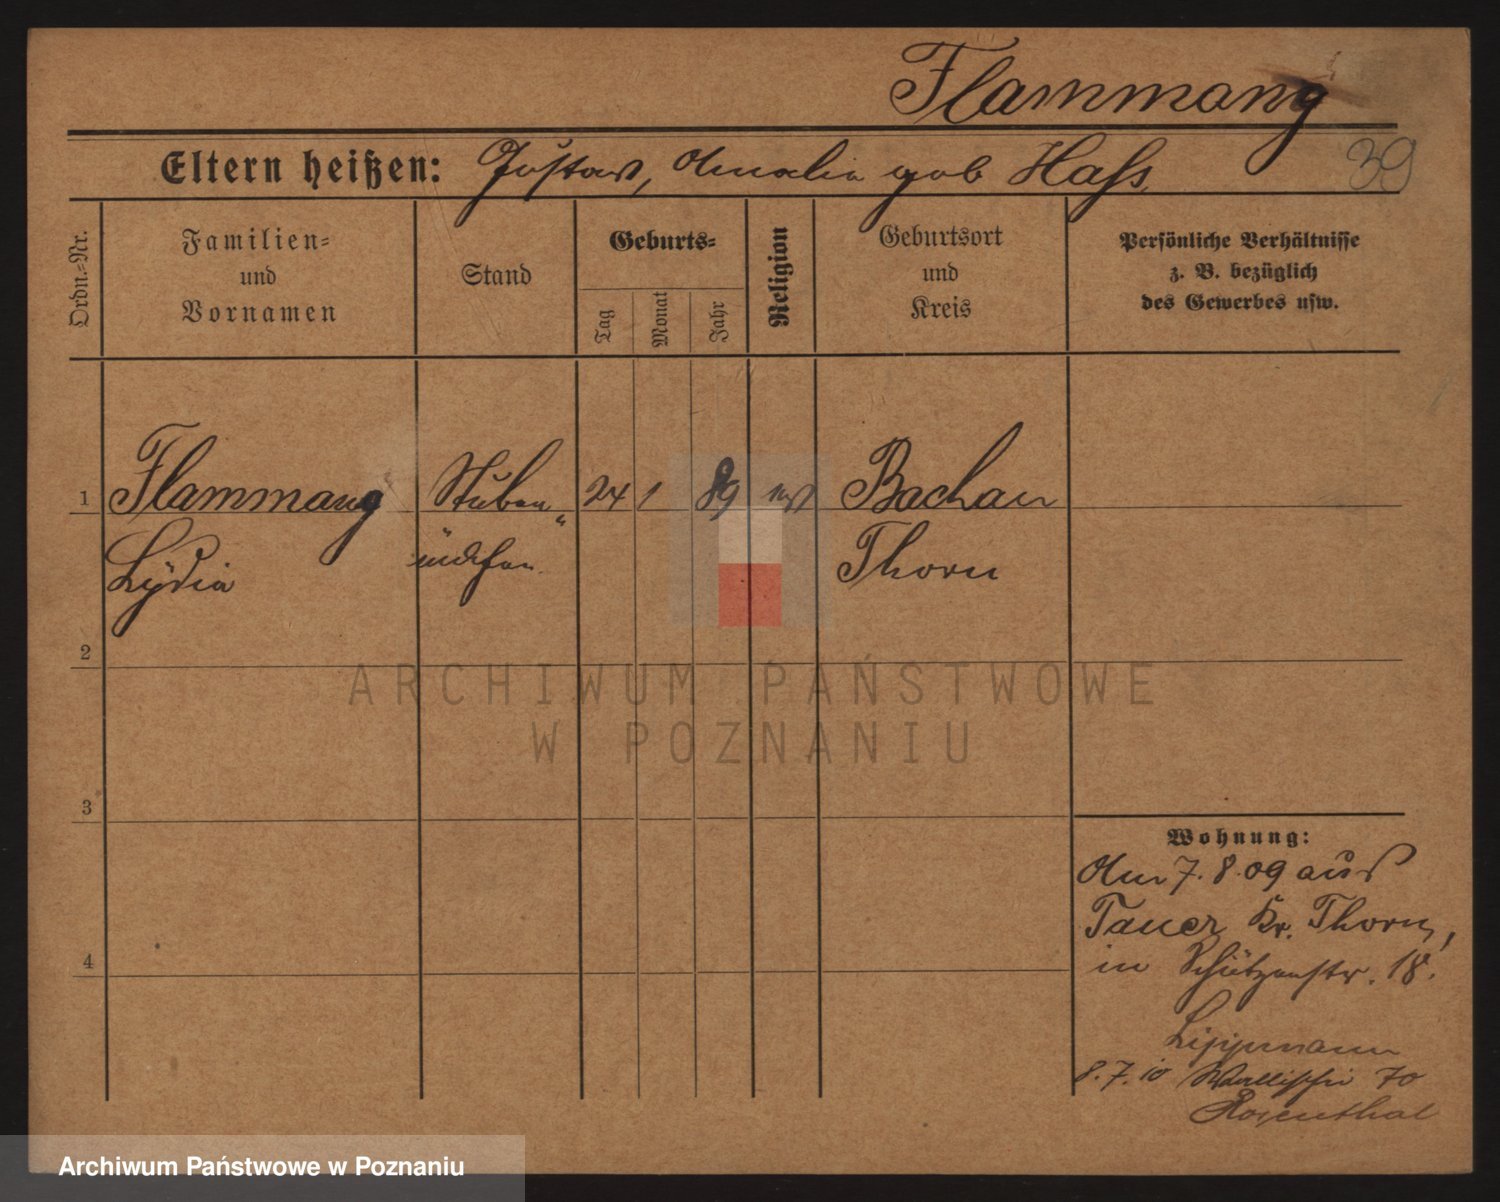 Flammang
39
Eltern heißen: Gustav, Amalie geb Hass
Ordn.-Nr.
Familien-
und
Vornamen
Stand
Geburts-
Tag
Monat
Jahr
Religion
Geburtsort
und
Kreis
Persönliche Verhältnisse
z. B. bezüglich
des Gewerbes usw.
1 Flammang Stuben 24 1 89 Bachau
Lydia mädchen Thorn
2
3
4
Wohnung:
Am 7.8.09 aus
Tauer Kr. Thorn,
in Schützenstr. 18.
Lippmann
8.7.10 Wallischei 70
Rosenthal
ARCHIWUM PAŃSTWOWE
W POZNANIU
Archiwum Państwowe w Poznaniu